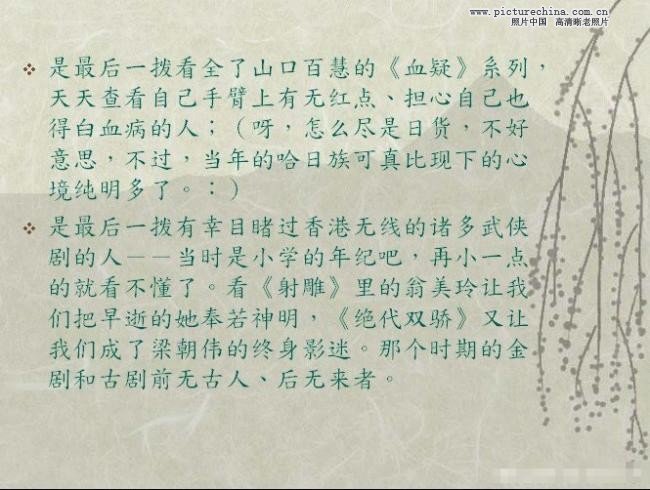 www.picturechina.com.cn
照片中国 高清晰老照片
❖ 是最后一拨看全了山口百慧的《血疑》系列，
天天查看自己手臂上有无红点、担心自己也
得白血病的人；（呀，怎么尽是日货，不好
意思，不过，当年的哈日族可真比现下的心
境纯明多了。：）
❖ 是最后一拨有幸目睹过香港无线的诸多武侠
剧的人——当时是小学的年纪吧，再小一点
的就看不懂了。看《射雕》里的翁美玲让我
们把早逝的她奉若神明，《绝代双骄》又让
我们成了梁朝伟的终身影迷。那个时期的金
剧和古剧前无古人、后无来者。